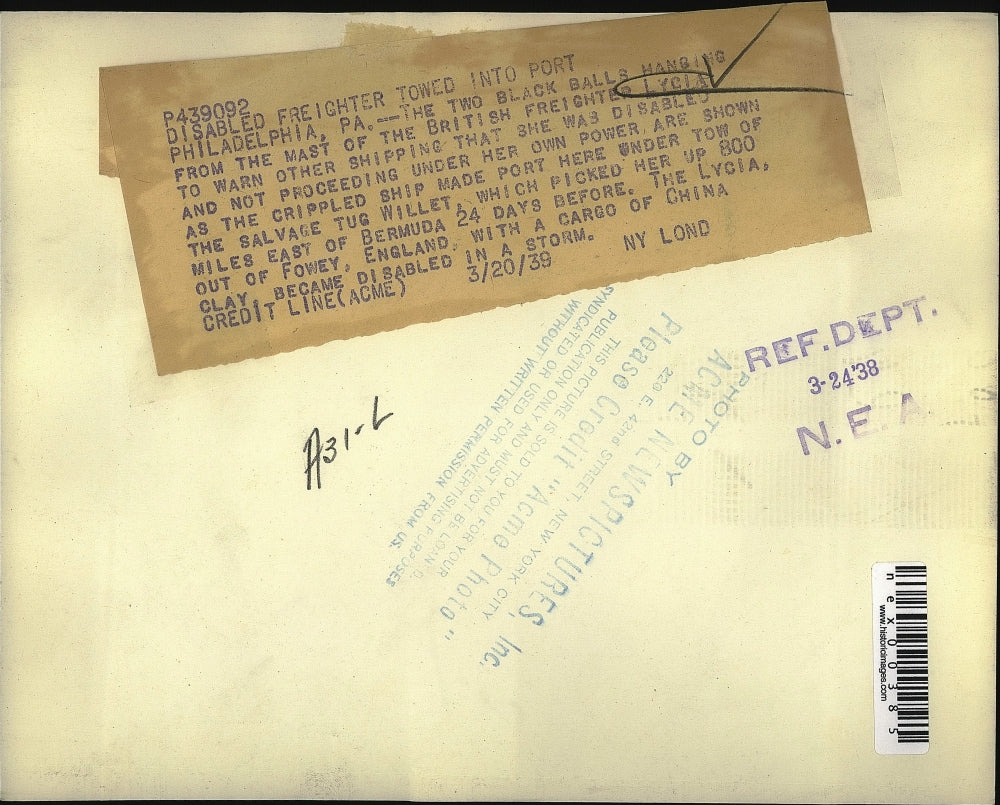 P439092
DISABLED FREIGHTER TOWED INTO PORT
PHILADELPHIA, PA.--THE TWO BLACK BALLS HANGING
FROM THE MAST OF THE BRITISH FREIGHTER LYCIA
TO WARN OTHER SHIPPING THAT SHE WAS DISABLED
AND NOT PROCEEDING UNDER HER OWN POWER, ARE SHOWN
AS THE CRIPPLED SHIP MADE PORT HERE UNDER TOW OF
THE SALVAGE TUG WILLET, WHICH PICKED HER UP 800
MILES EAST OF BERMUDA 24 DAYS BEFORE. THE LYCIA,
OUT OF FOWEY, ENGLAND, WITH A CARGO OF CHINA
CLAY, BECAME DISABLED IN A STORM. NY LOND
CREDIT LINE(ACME) 3/20/39
REF.DEPT.
3-24'38
N.E.A.
A31-L
PHOTO BY
ACME NEWSPICTURES, Inc.
220 E. 42nd STREET, NEW YORK CITY
Please Credit "Acme Photo"
THIS PICTURE IS SOLD TO YOU FOR YOUR
PUBLICATION ONLY AND MUST NOT BE LOANED
SYNDICATED OR USED FOR ADVERTISING PURPOSES
WITHOUT WRITTEN PERMISSION FROM US.
nex00385
www.historicimages.com